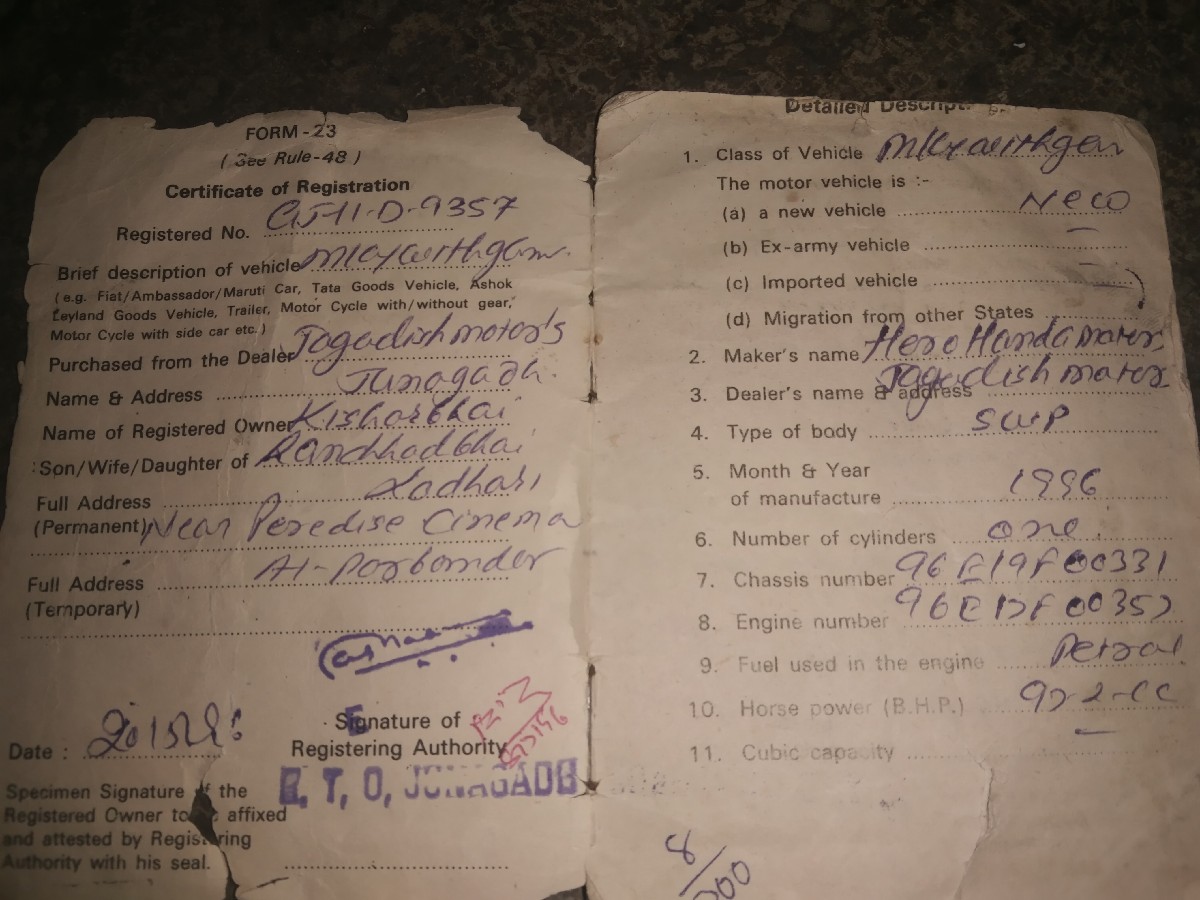 FORM - 23
( See Rule-48 )
Certificate of Registration
Registered No. GJ-11-D-9357
Brief description of vehicle
( e.g. Fiat/Ambassador/Maruti Car, Tata Goods Vehicle, Ashok
Leyland Goods Vehicle, Trailer, Motor Cycle with/without gear,
Motor Cycle with side car etc. )
Purchased from the Dealer Jagadish motors
Name & Address Junagadh.
Name of Registered Owner Kishorbhai
Son/Wife/Daughter of Ranchhodbhai
Full Address Ladhari
(Permanent) Near Peredise Cinema
Full Address At-Porbander
(Temporary)
Signature of
Registering Authority
Date :
R, T, O, JUNAGADH
Specimen Signature of the
Registered Owner to be affixed
and attested by Registering
Authority with his seal.
Detailed Descript
1. Class of Vehicle
The motor vehicle is :-
(a) a new vehicle New
(b) Ex-army vehicle
(c) Imported vehicle
(d) Migration from other States
2. Maker's name Hero Honda motors
3. Dealer's name & address Jagadish motors
4. Type of body
5. Month & Year
of manufacture 1996
6. Number of cylinders one
7. Chassis number 96E19F00331
8. Engine number
9. Fuel used in the engine Petrol
10. Horse power (B.H.P.) 97-2-CC
11. Cubic capacity
8/